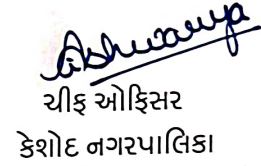 ચીફ ઓફિસર
કેશોદ નગરપાલિકા